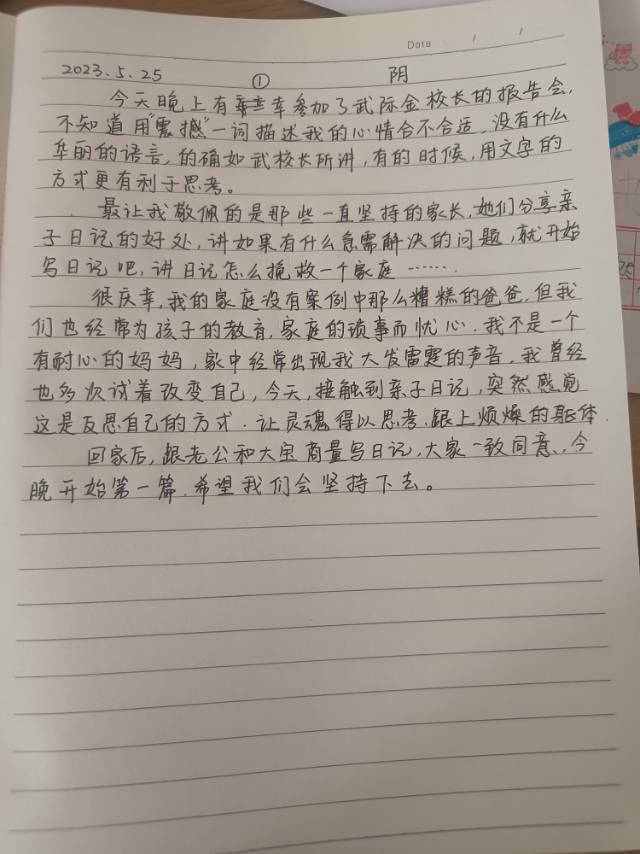 Date / /
2023.5.25 ① 阴
今天晚上有幸参加了武际金校长的报告会,
不知道用"震撼"一词描述我的心情合不合适,没有什么
华丽的语言,的确如武校长所讲,有的时候,用文字的
方式更有利于思考。
最让我敬佩的是那些一直坚持的家长,她们分享亲
子日记的好处,讲如果有什么急需解决的问题,就开始
写日记吧,讲日记怎么挽救一个家庭…….
很庆幸,我的家庭没有案例中那么糟糕的爸爸,但我
们也经常为孩子的教育,家庭的琐事而忧心.我不是一个
有耐心的妈妈,家中经常出现我大发雷霆的声音,我曾经
也多次试着改变自己,今天,接触到亲子日记,突然感觉
这是反思自己的方式.让灵魂得以思考.跟上烦燥的躯体.
回家后,跟老公和大宝商量写日记,大家一致同意,今
晚开始第一篇,希望我们会坚持下去。